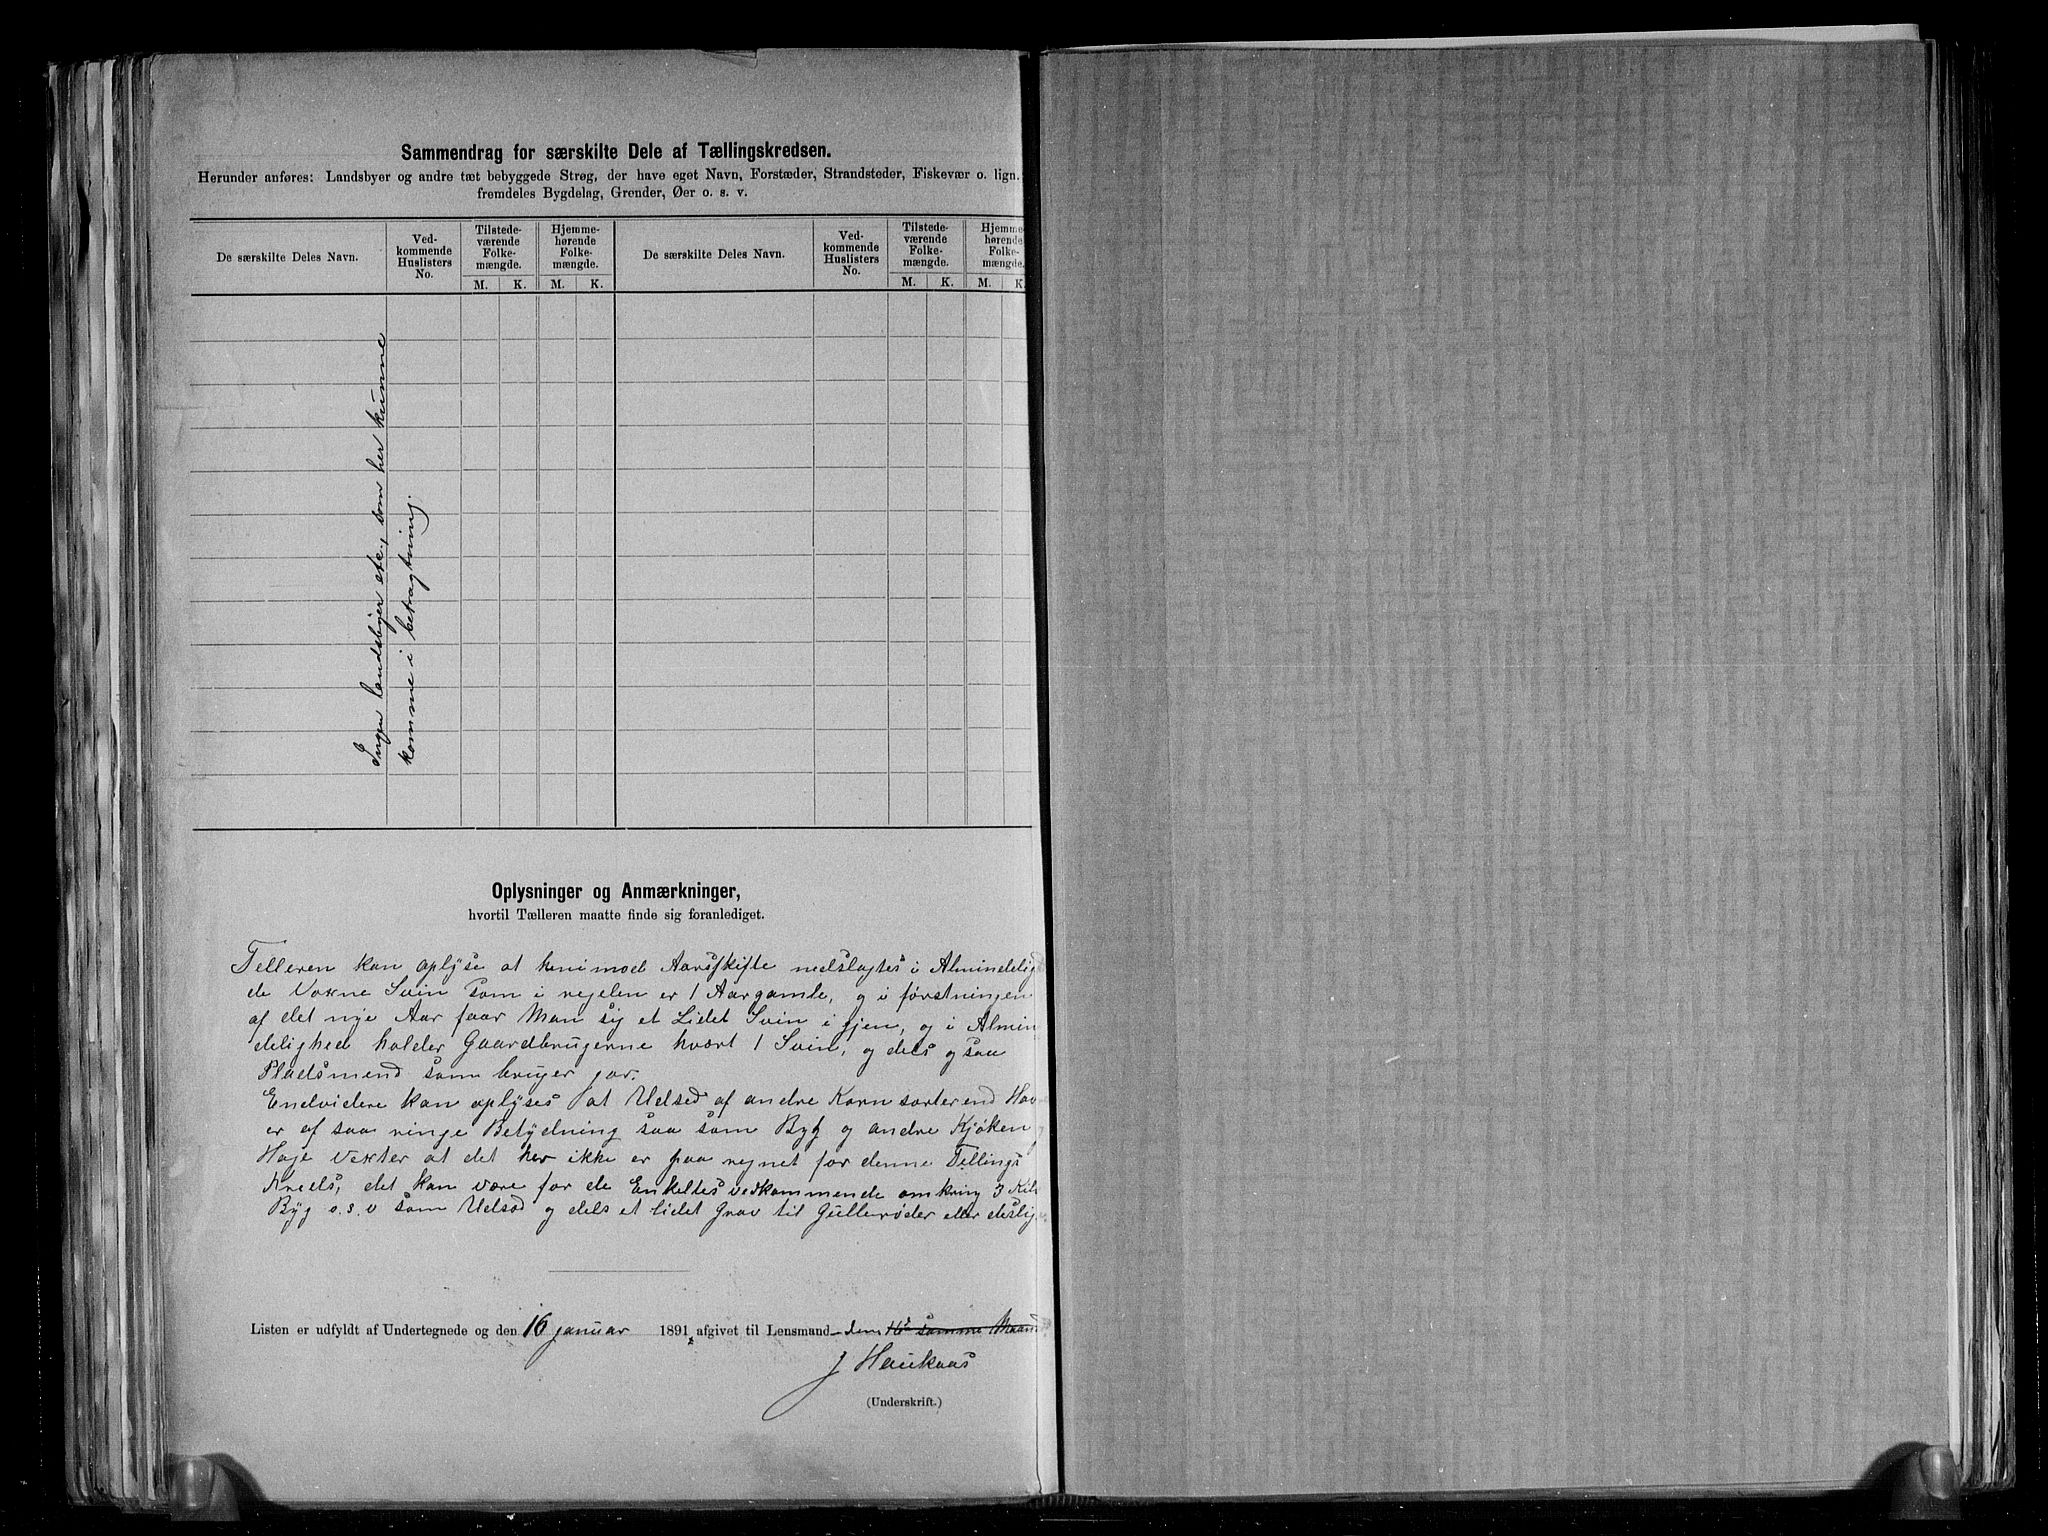 Sammendrag for særskilte Dele af Tællingskredsen.
Herunder anføres: Landsbyer og andre tæt bebyggede Strøg, der have eget Navn, Forstæder, Strandsteder, Fiskevær o. lign.
fremdeles Bygdelag, Grender, Øer o. s. v.
De særskilte Deles Navn.
Ved-
kommende
Huslisters
No.
Tilstede-
værende
Folke-
mængde.
M. K.
Hjemme-
hørende
Folke-
mængde.
M. K.
De særskilte Deles Navn.
Ved-
kommende
Huslisters
No.
Tilstede-
værende
Folke-
mængde.
M. K.
Hjemme-
hørende
Folke-
mængde.
M. K.
Ingen landsbyer etc., som her kunne
komme i betragtning.
Oplysninger og Anmærkninger,
hvortil Tælleren maatte finde sig foranlediget.
Telleren kan oplyse at henimod Aarsskifte nedslagtes i Almindelig
de Voxne Svin som i regelen er 1 Aargamle, og i førstningen
af det nye Aar faar Man sig et Lidet Svin i gjen, og i Almin
delighed holder Gaardbrugerne hvært 1 Svin, og dels og saa
Pladsmend som bruger jor.
Endvidere kan oplyses at Udsed af andre Kornsorter end Hav
er af saa ringe Betydning saa som Byg og andre Kjøken
Hage vexter at det her ikke er paa regnet for denne Tellings
Kreds, det kan være for de Enkeltes vedkommende omkring 3 Kil
Byg o.s.v som Udsæd og dels et lidet Grav til Gullerøder eller deslig
Listen er udfyldt af Undertegnede og den 16 januar 1891, afgivet til Lensmand den 16d samme Maaned
J Haukaas
(Underskrift.)